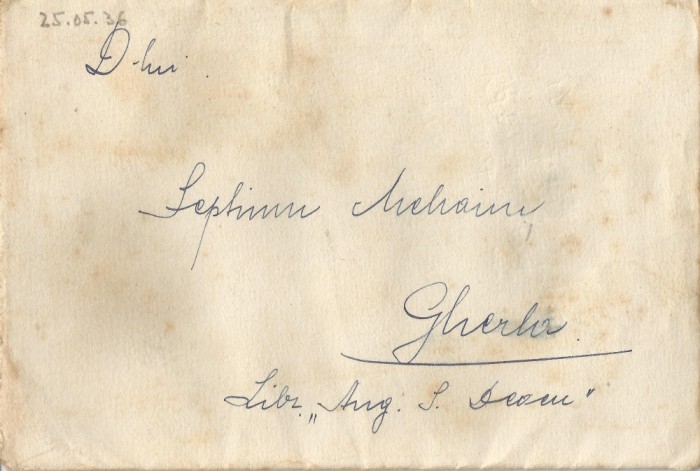 25.05.36
D-lui
Septimiu
Gherla
Libr. „Aug. S. Deacu"